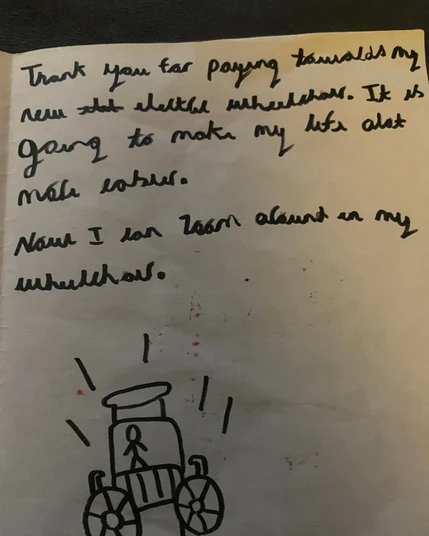 Thank you for paying towards my
new electric wheelchair. It is
going to make my life alot
more easier.
Now I can zoom around in my
wheelchair.